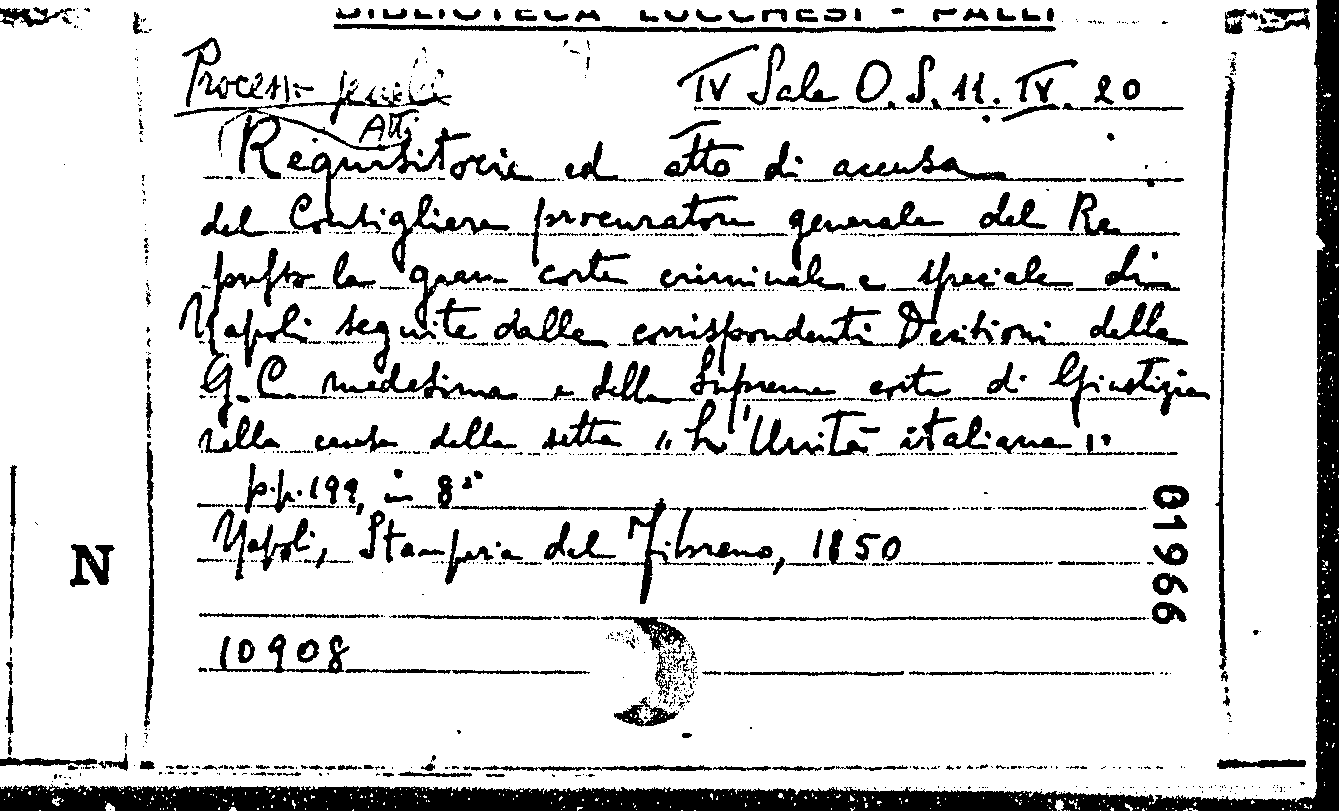 BIBLIOTECA LUCCHESI - PALLI
Processi penali
IV Sala O. S. 11. IV. 20
Atti
Requisitorie ed atto di accusa
del Consigliere procuratore generale del Re
presso la gran corte criminale e speciale di
Napoli seguite dalle corrispondenti Decisioni della
G. C. medesima e della Suprema corte di Giustizia
nella causa della setta "L'Unità italiana".
p.p. 199, in 8°
Napoli, Stamperia del Fibreno, 1850
10908
N
01966